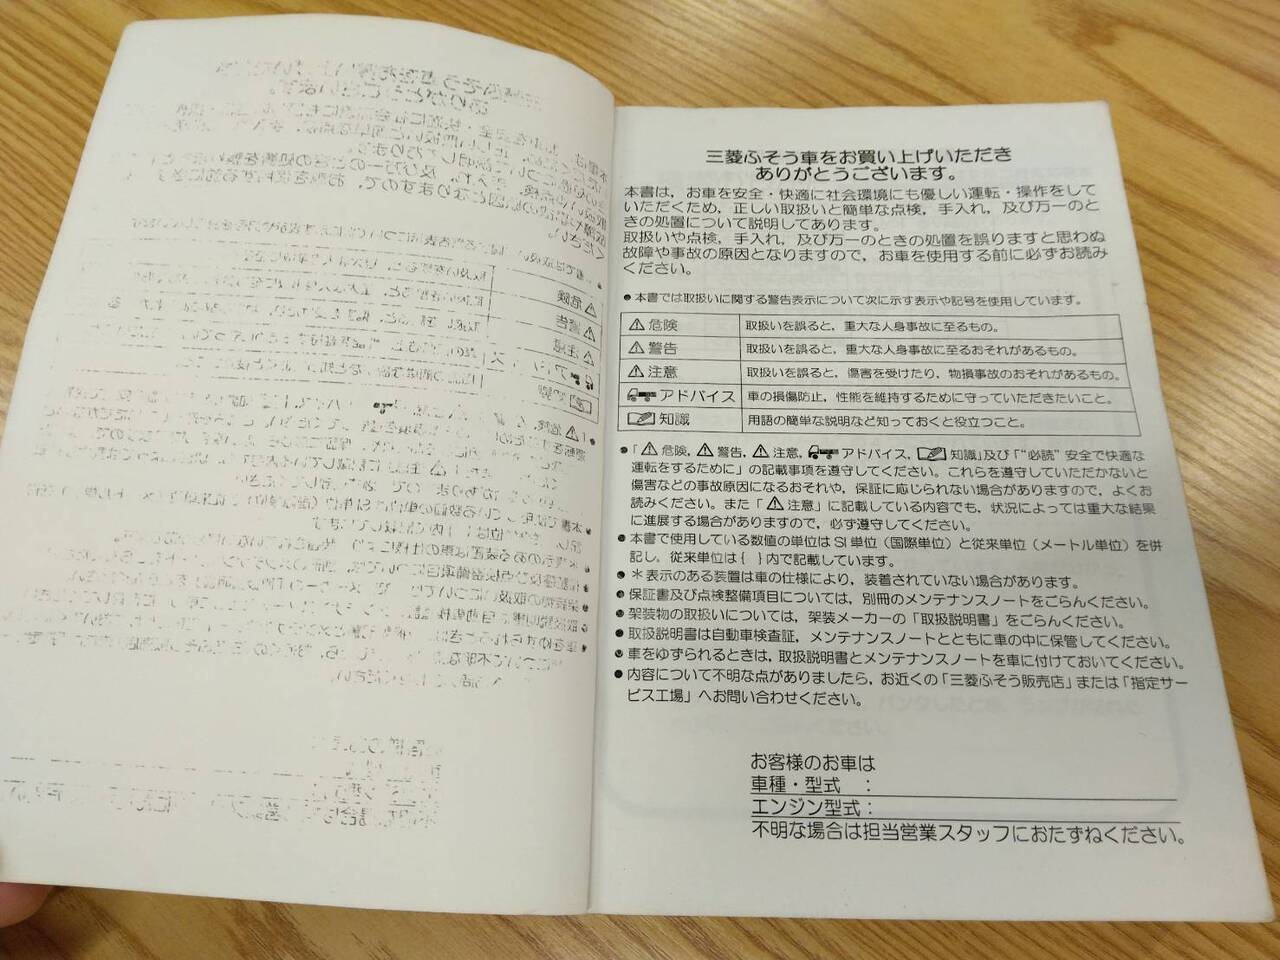 三菱ふそう車をお買い上げいただき
ありがとうございます。
本書は，お車を安全・快適に社会環境にも優しい運転・操作をして
いただくため，正しい取扱いと簡単な点検，手入れ，及び万一のと
きの処置について説明してあります。
取扱いや点検，手入れ，及び万一のときの処置を誤りますと思わぬ
故障や事故の原因となりますので，お車を使用する前に必ずお読み
ください。
●本書では取扱いに関する警告表示について次に示す表示や記号を使用しています。
⚠危険 取扱いを誤ると，重大な人身事故に至るもの。
⚠警告 取扱いを誤ると，重大な人身事故に至るおそれがあるもの。
⚠注意 取扱いを誤ると，傷害を受けたり，物損事故のおそれがあるもの。
アドバイス 車の損傷防止，性能を維持するために守っていただきたいこと。
知識 用語の簡単な説明など知っておくと役立つこと。
●「⚠危険，⚠警告，⚠注意，アドバイス，知識」及び「"必読"安全で快適な
運転をするために」の記載事項を遵守してください。これらを遵守していただかないと
傷害などの事故原因になるおそれや，保証に応じられない場合がありますので，よくお
読みください。また「⚠注意」に記載している内容でも，状況によっては重大な結果
に進展する場合がありますので，必ず遵守してください。
●本書で使用している数値の単位はSI単位（国際単位）と従来単位（メートル単位）を併
記し，従来単位は{ }内で記載しています。
●＊表示のある装置は車の仕様により，装着されていない場合があります。
●保証書及び点検整備項目については，別冊のメンテナンスノートをごらんください。
●架装物の取扱いについては，架装メーカーの「取扱説明書」をごらんください。
●取扱説明書は自動車検査証，メンテナンスノートとともに車の中に保管してください。
●車をゆずられるときは，取扱説明書とメンテナンスノートを車に付けておいてください。
●内容について不明な点がありましたら，お近くの「三菱ふそう販売店」または「指定サー
ビス工場」へお問い合わせください。
お客様のお車は
車種・型式 ：
エンジン型式：
不明な場合は担当営業スタッフにおたずねください。